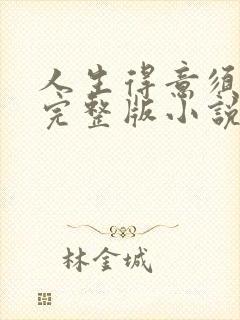 人生得意须
完整版小説
林金城